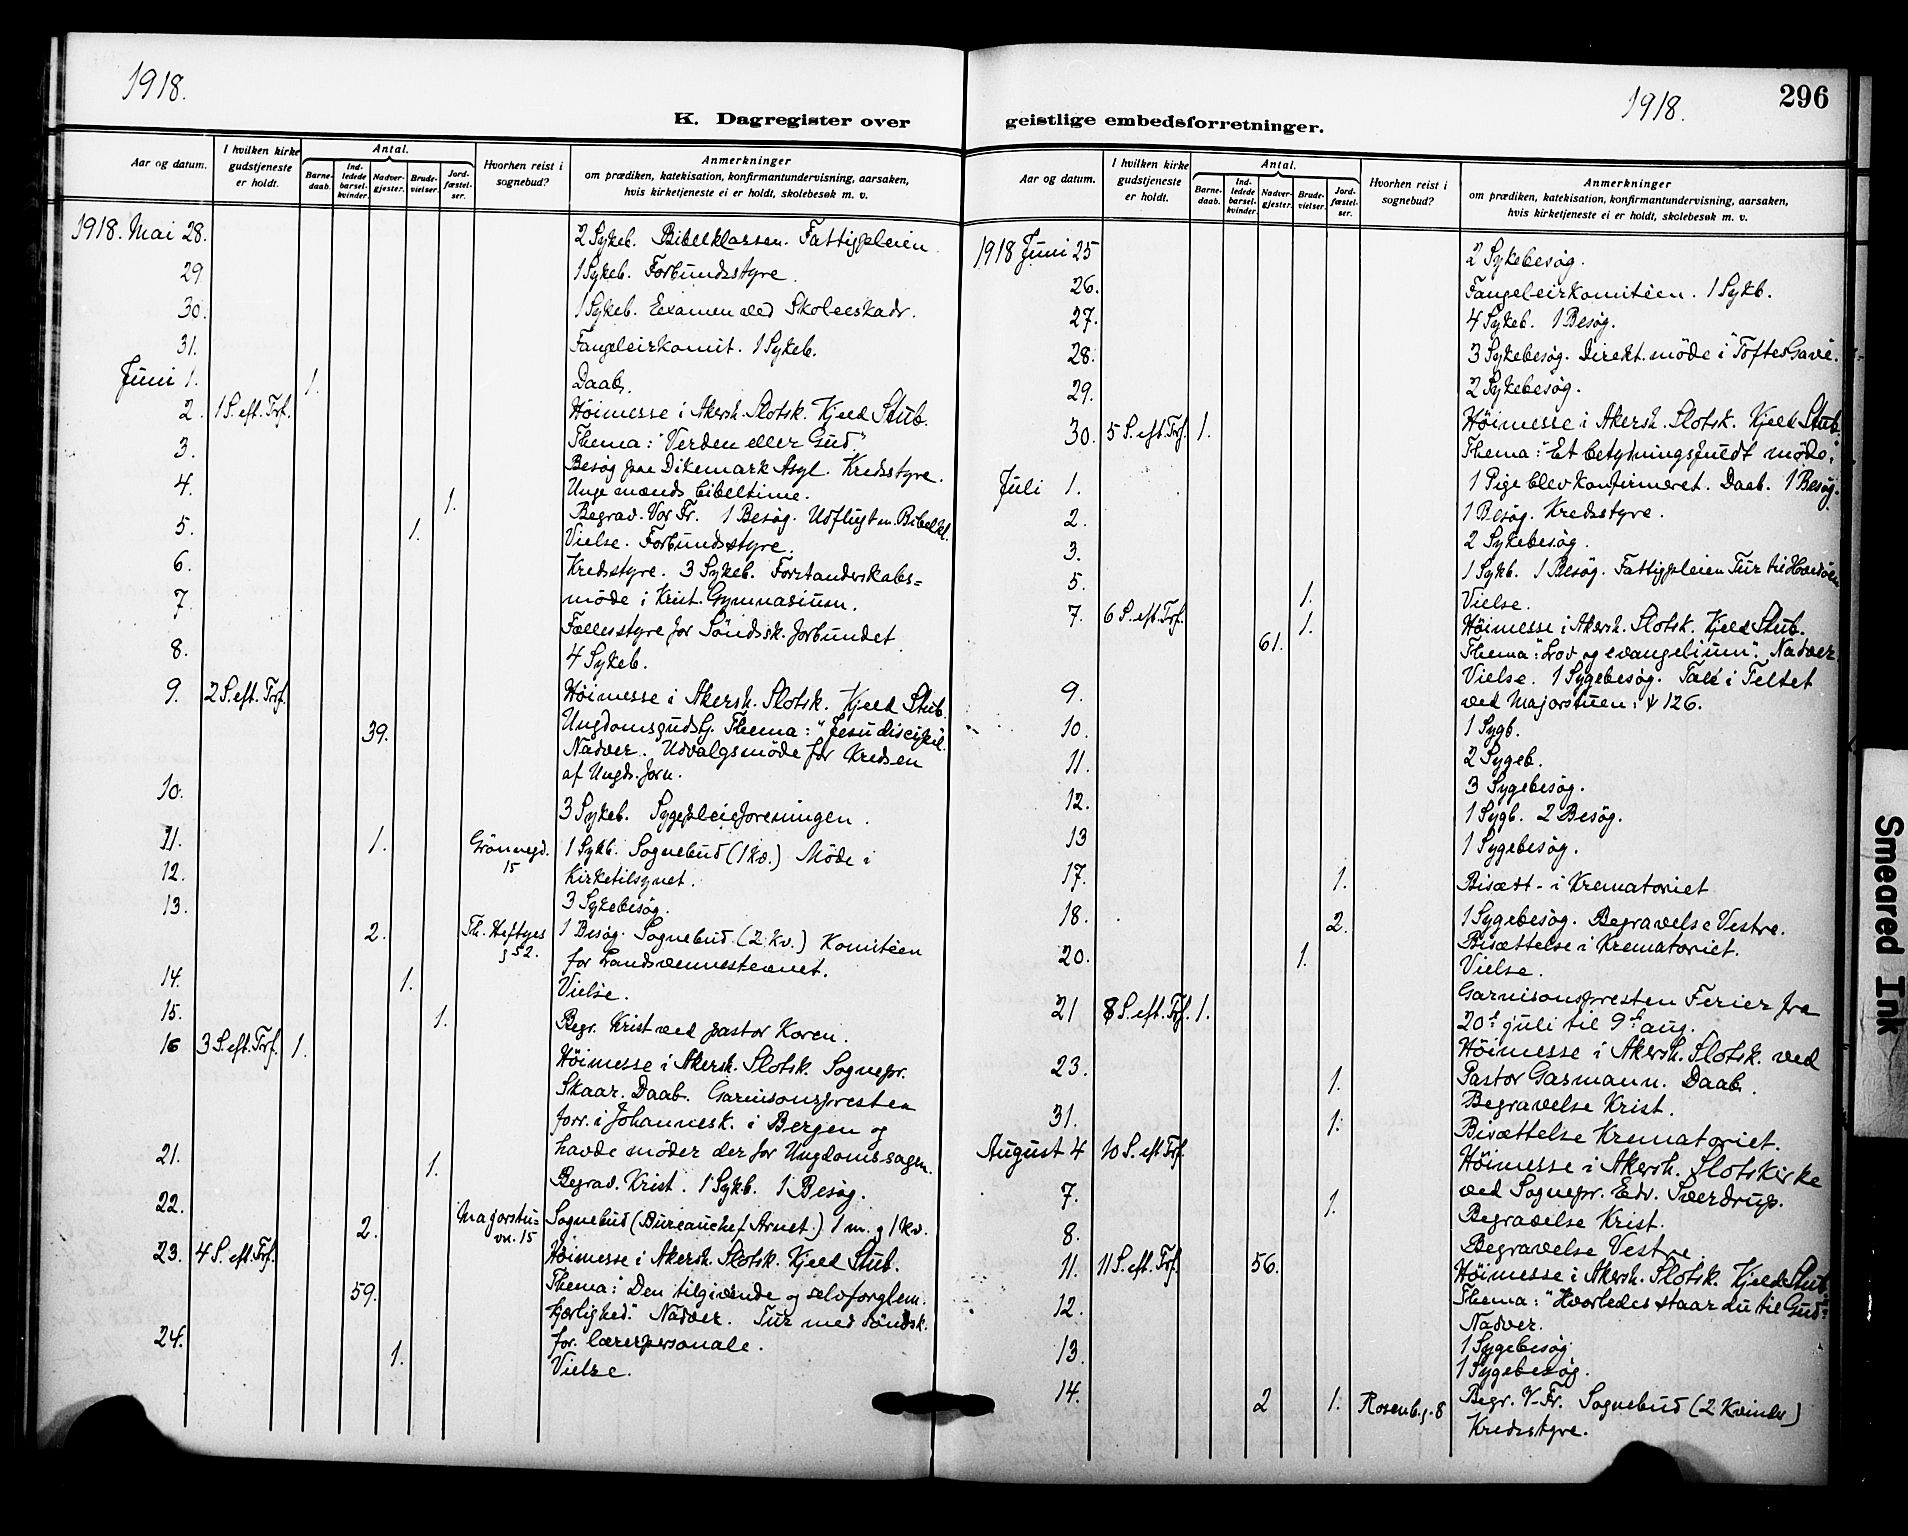 1918.
K. Dagregister over
Aar og datum.
I hvilken kirke gudstjeneste er holdt.
Antal.
Barnedaab.
Indledede barselkvinder.
Nadvergjester.
Brudevielser.
Jordfæstelser.
Hvorhen reist i sognebud?
Anmerkninger
om prædiken, katekisation, konfirmantundervisning, aarsaken,
hvis kirketjeneste ei er holdt, skolebesøk m. v.
1918. Mai 28. 2 Sykeb. Bibelklassen. Fattigpleien.
29 1 Sykeb. Forbundsstyre.
30. 1 Sykeb. Examen ved Skoleeskadr.
31. Fangeleirkomit. 1 Sykeb.
Juni 1. 1. Daab.
2. 1 S. eft. Trf. Höimesse i Akersh. Slotsk. Kjeld Stub.
Thema: "Verden eller Gud"
3. Besög paa Dikemark Asyl. Kredsstyre.
Unge mænds bibeltime.
4. 1. Begrav. Vor Fr. 1 Besög. Udflugt m. Bibelkl.
5. 1. Vielse. Forbundsstyre.
6. Kredsstyre. 3 Sykeb. Forstanderskabs=
möde i Krist. Gymnasium.
7. Fællesstyre for Söndsk. forbundet
8. 4 Sykeb.
9. 2 S. eft. Trf. Höimesse i Akersh. Slotsk. Kjeld Stub.
39. Ungdomsgudstj. Thema: "Jesu discipel.
Nadver. Udvalgsmöde for Kredsen
af Ungds. forn.
10. 3 Sykeb. Sygepleieforeningen.
11. 1. Grönnegd. 15 1 Sykb. Sognebud (1 kv.) Möde i
Kirketilsynet.
12. 3 Sykebesög.
13. 2. Th. Heftyes g 52. 1 Besög. Sognebud. (2 Kv.) Komitéen
for Landsvennestevnet.
14. 1. Vielse.
15. 1. Begr. Krist ved pastor Koren.
16 3 S. eft. Trf. 1. Höimesse i Akersh. Slotsk. Sognepr.
Skaar. Daab. Garnisonspresten
forr. i Johannesk. i Bergen og
havde möder der for Ungdomssagen.
21. 1. Begrav. Krist. 1 Sykb. 1 Besög.
22. 2. Majorstu=vn. 15 Sognebud (Bureauchef Arnet.) 1 m. g 1 kv.
23. 4 S. eft. Trf. Höimesse i Akersh. Slotsk. Kjeld Stub.
59. Thema: "Den tilgivende og selvforglem.
kjærlighed." Nadver. Tur med söndsk.
for. lærerpersonale.
24. 1. Vielse.
296
1918.
geistlige embedsforretninger.
Aar og datum.
I hvilken kirke gudstjeneste er holdt.
Antal.
Barnedaab.
Indledede barselkvinder.
Nadvergjester.
Brudevielser.
Jordfæstelser.
Hvorhen reist i sognebud?
Anmerkninger
om prædiken, katekisation, konfirmantundervisning, aarsaken,
hvis kirketjeneste ei er holdt, skolebesøk m. v.
1918 Juni 25 2 Sykebesög.
26. Fangeleirkomitéen. 1 Sykb.
27. 4 Sykeb. 1 Besög.
28. 3 Sykebesög. Direkt. möde i "Toftes Gave.
29. 2 Sykebesög.
30. 5 S. eft. Trf. 1. Höimesse i Akersh. Slotsk. Kjeld Stub.
Thema: "Et betydningsfuldt möde."
1 Pige blev konfirmeret. Daab. 1 Besög.
Juli 1. 1 Besög. Kredsstyre.
2. 2 Sykebesög.
3. 1 Sykb. 1 Besög. Fattigpleien Tur til Hovedöen
5. 1. Vielse.
7. 6 S. eft. Trf. 1. Höimesse i Akersh. Slotsk. Kjeld Stub.
61. Thema: "Lov og evangelium". Nadver.
Vielse. 1 Sygebesög. Tale i Teltet
ved Majorstuen: ψ 126.
9. 1 Sygb.
10. 2 Sygeb.
11. 3 Sygebesög.
12. 1 Sygb. 2 Besög.
13 1 Sygebesög.
17. 1. Bisætt- i Krematoriet
18. 2. 1 Sygebesög. Begravelse Vestre.
Bisættelse i Krematoriet.
20. 1. Vielse.
Garnisonspresten Ferier fra
20de juli til 9de aug.
21 8 S. eft. Trf. 1. Höimesse i Akersh. Slotsk. ved
Pastor Gasmann. Daab.
23. 1. Begravelse Krist.
31. 1. Bisættelse Krematoriet.
August 4 10 S. eft Trf. Höimesse i Akersh. Slotskirke
ved Sognepr. Edv. Sverdrup.
7. 1. Begravelse Krist.
8. Begravelse Vestre.
11. 11 S. eft. Trf. 56. Höimesse i Akersh. Slotsk. Kjeld Stub.
Thema: "Hvorledes staar du til Gud"
Nadver.
12. 1 Sygebesög
13. 1 Sygebesög.
14. 2 1. Rosenb.g. 8 Begr. V. Fr. Sognebud (2 Kvinder)
Kredsstyre.
Smeared Ink